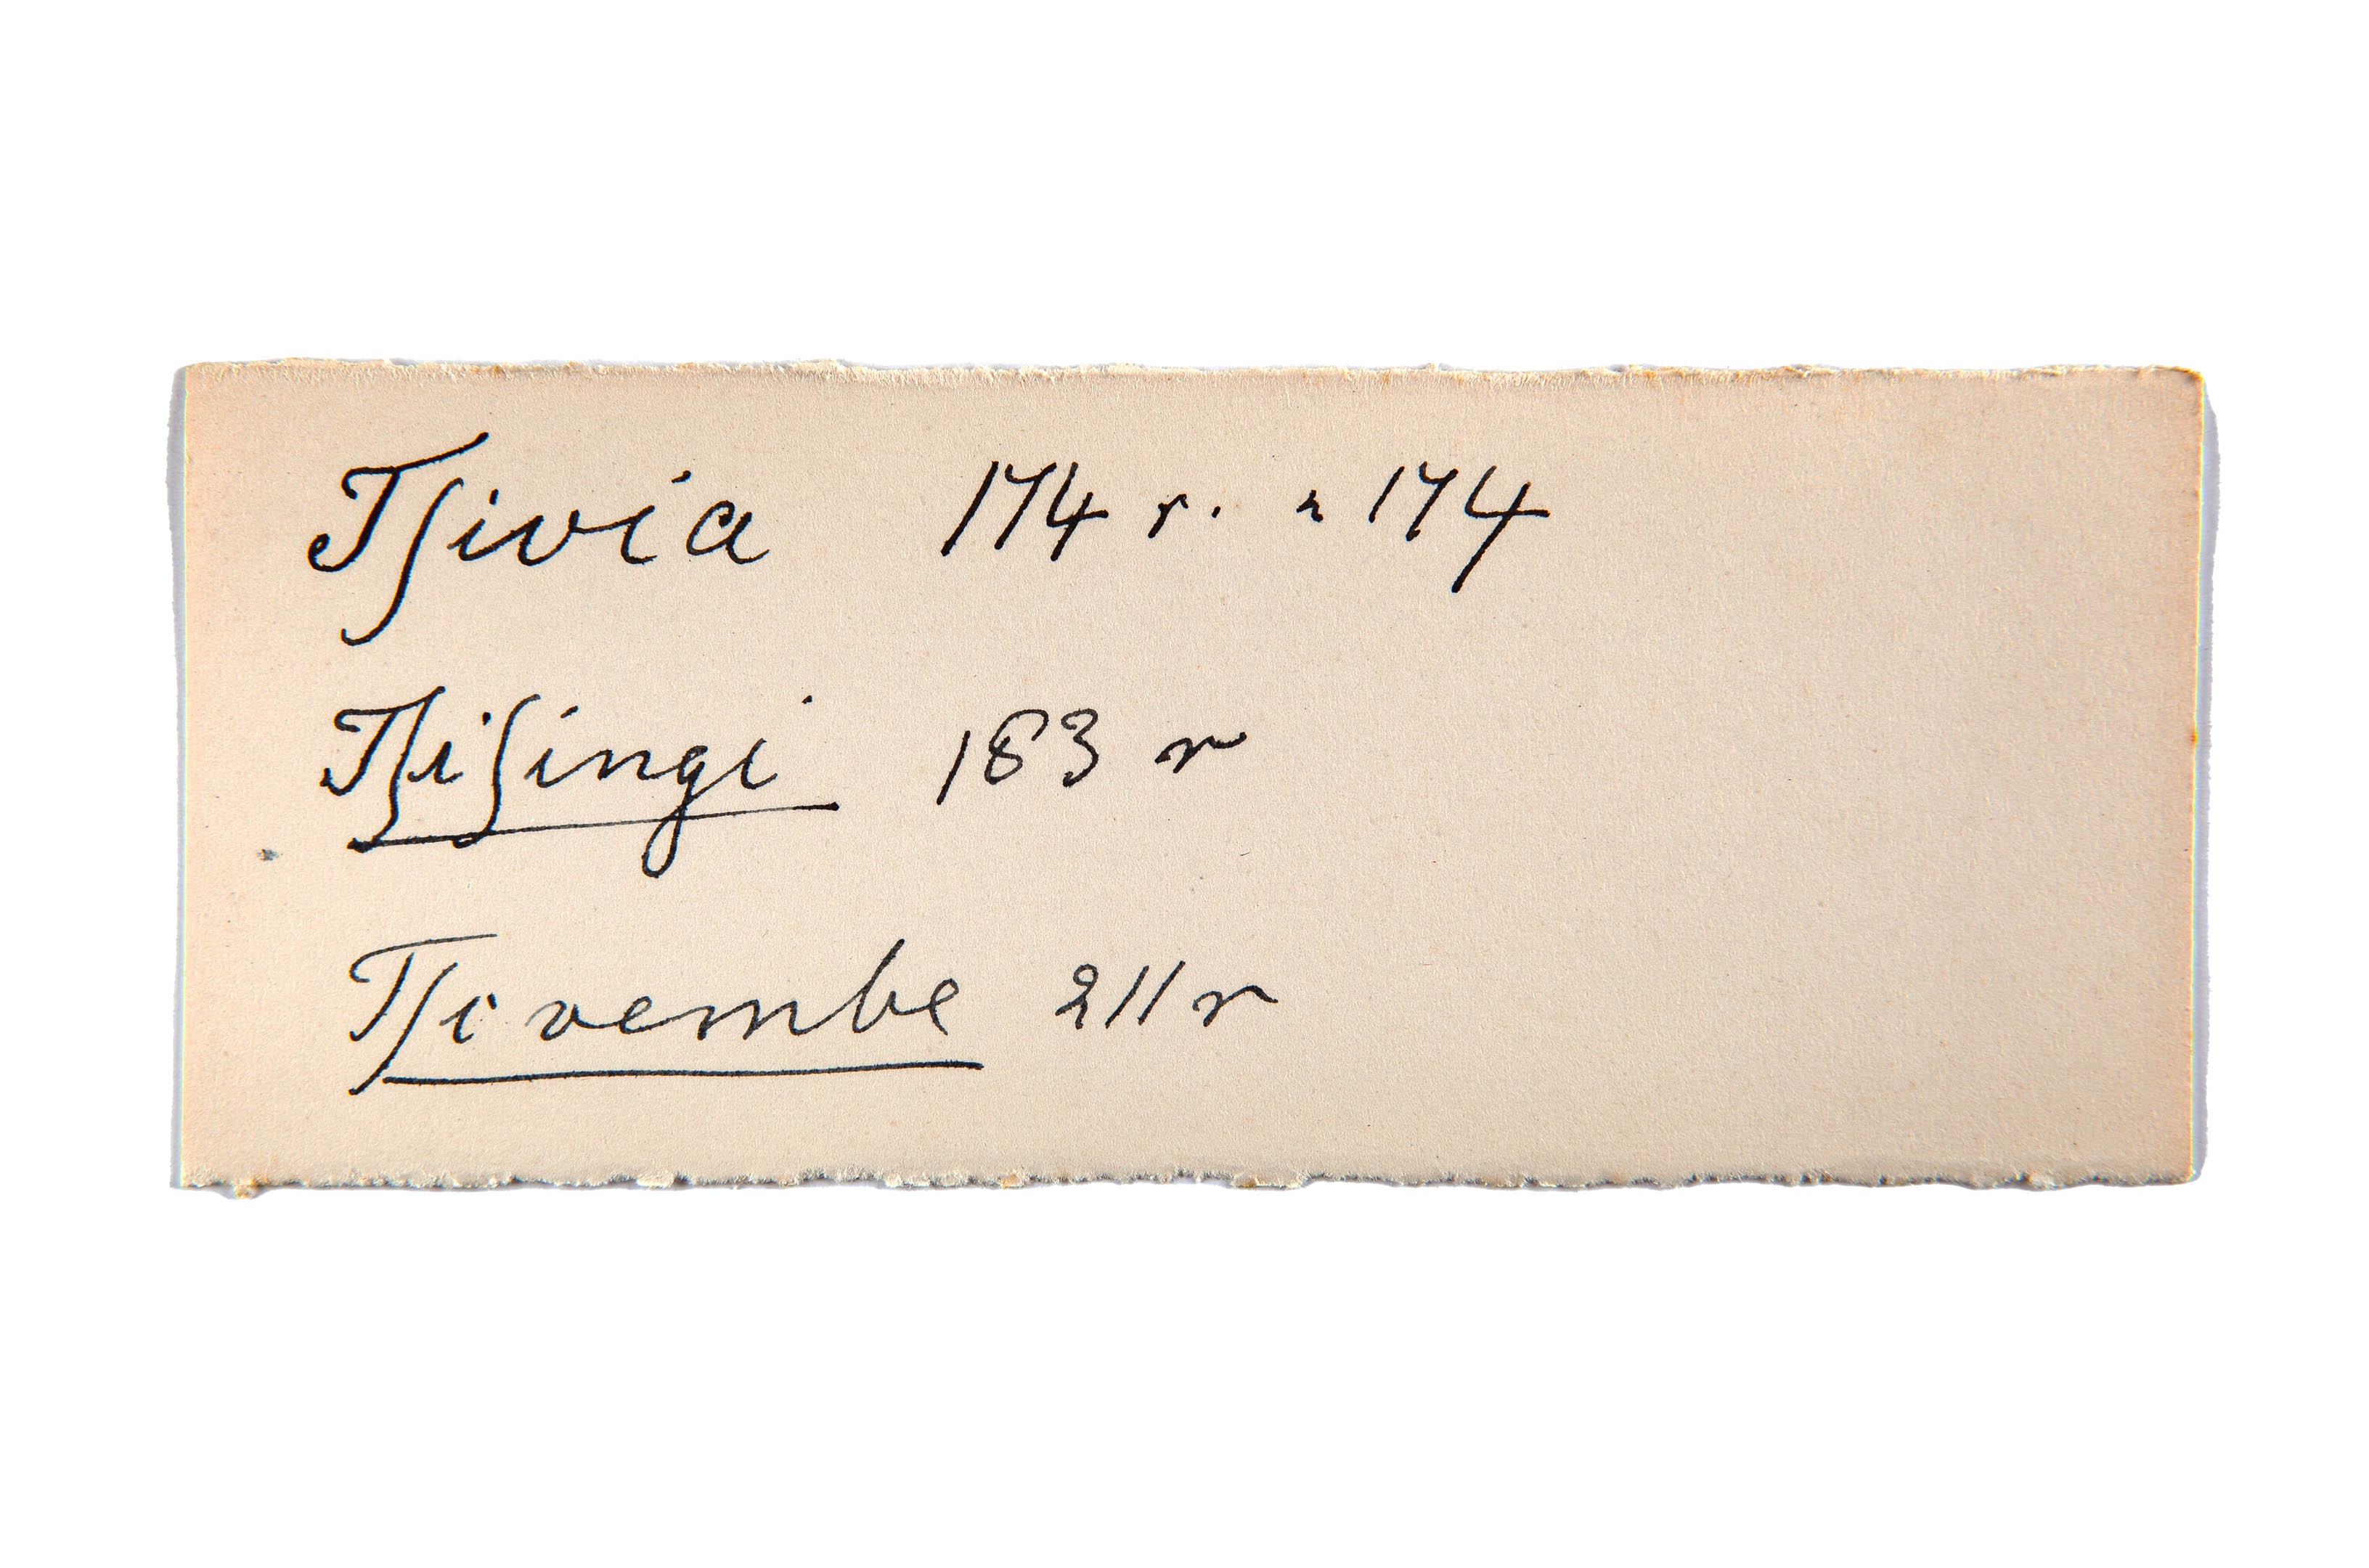 Tſivia 174 r. r 174
Tſiſingi 183 r
Tſivembe 211 r